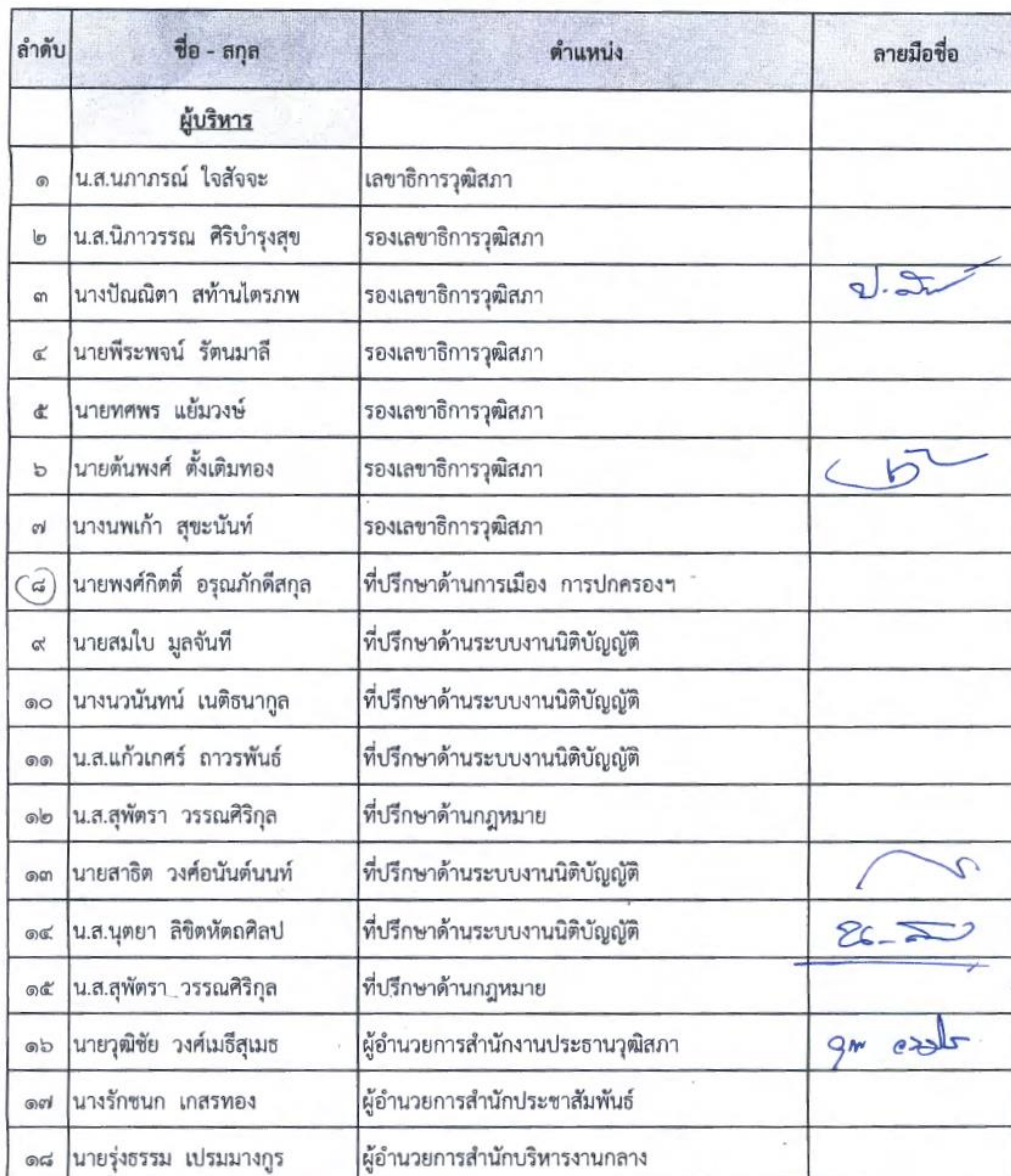 ลำดับ ชื่อ - สกุล ตำแหน่ง ลายมือชื่อ
ผู้บริหาร
๑ น.ส.นภาภรณ์ ใจสัจจะ เลขาธิการวุฒิสภา
๒ น.ส.นิภาวรรณ ศิริบำรุงสุข รองเลขาธิการวุฒิสภา
๓ นางปัณณิตา สท้านไตรภพ รองเลขาธิการวุฒิสภา
๔ นายพีระพจน์ รัตนมาลี รองเลขาธิการวุฒิสภา
๕ นายทศพร แย้มวงษ์ รองเลขาธิการวุฒิสภา
๖ นายต้นพงศ์ ตั้งเติมทอง รองเลขาธิการวุฒิสภา
๗ นางนพเก้า สุขะนันท์ รองเลขาธิการวุฒิสภา
๘ นายพงศ์กิตติ์ อรุณภักดีสกุล ที่ปรึกษาด้านการเมือง การปกครองฯ
๙ นายสมใบ มูลจันที ที่ปรึกษาด้านระบบงานนิติบัญญัติ
๑๐ นางนวนันทน์ เนติธนากูล ที่ปรึกษาด้านระบบงานนิติบัญญัติ
๑๑ น.ส.แก้วเกศร์ ถาวรพันธ์ ที่ปรึกษาด้านระบบงานนิติบัญญัติ
๑๒ น.ส.สุพัตรา วรรณศิริกุล ที่ปรึกษาด้านกฎหมาย
๑๓ นายสาธิต วงศ์อนันต์นนท์ ที่ปรึกษาด้านระบบงานนิติบัญญัติ
๑๔ น.ส.นุตยา ลิขิตหัตถศิลป ที่ปรึกษาด้านระบบงานนิติบัญญัติ
๑๕ น.ส.สุพัตรา วรรณศิริกุล ที่ปรึกษาด้านกฎหมาย
๑๖ นายวุฒิชัย วงศ์เมธีสุเมธ ผู้อำนวยการสำนักงานประธานวุฒิสภา
๑๗ นางรักชนก เกสรทอง ผู้อำนวยการสำนักประชาสัมพันธ์
๑๘ นายรุ่งธรรม เปรมมางกูร ผู้อำนวยการสำนักบริหารงานกลาง